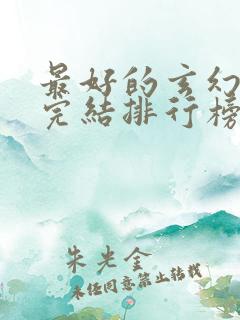 最好的玄幻
完結排行榜
朱光金
未经同意禁止转载